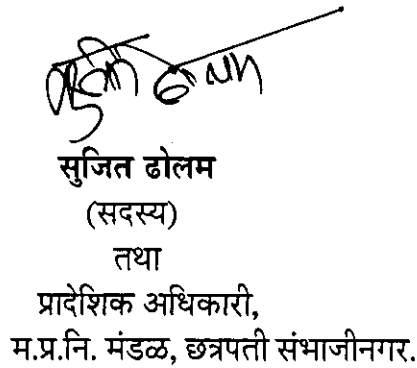 सुजित ढोलम
(सदस्य)
तथा
प्रादेशिक अधिकारी,
म.प्र.नि. मंडळ, छत्रपती संभाजीनगर.